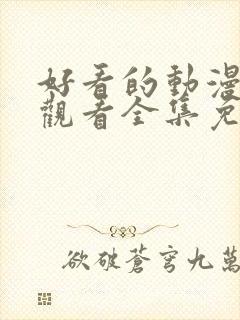 好看的動漫
觀看全集免
欲破蒼穹九萬